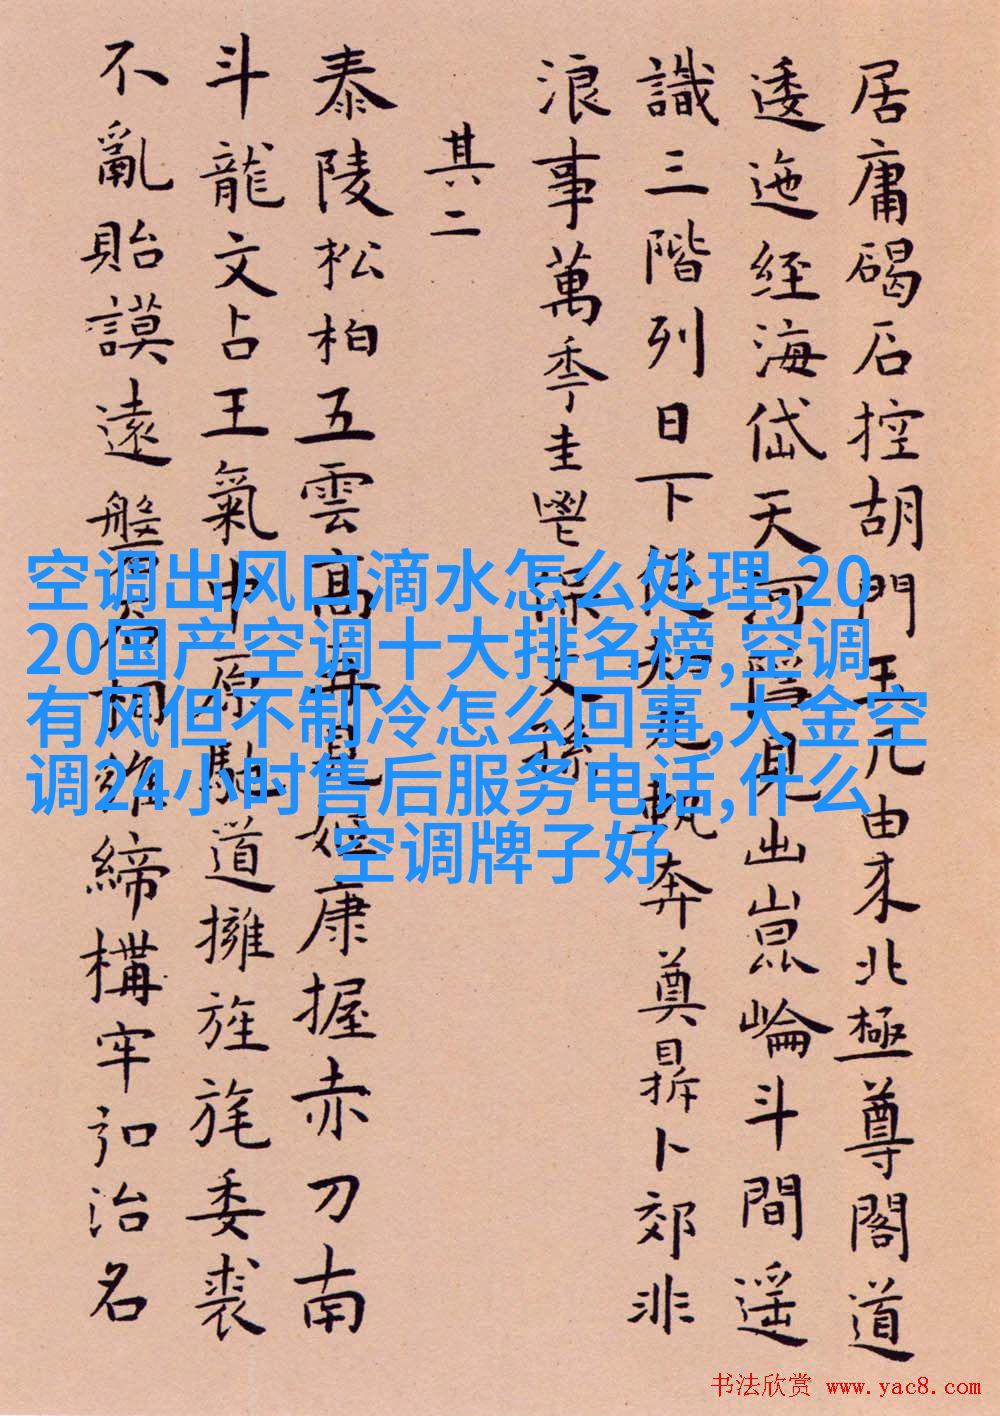 居庸碣石控胡門由来北極尊閣道
逶迤經海岱天河見出崑崙斗間遥
識三階列日下軌奔奠鼎卜郊非
浪事萬秊圭鬯保文孫
其二
泰陵松柏五雲高再見姬康握赤刀南
斗龍文占王氣中原馳道擁旌旄委裘
不亂貽謨遠盤石相維締構牢治名
空调出风口滴水怎么处理,20
20国产空调十大排名榜,空调
有风但不制冷怎么回事,大金空
调24小时售后服务电话,什么
空调牌子好
书法欣赏 www.yac8.com